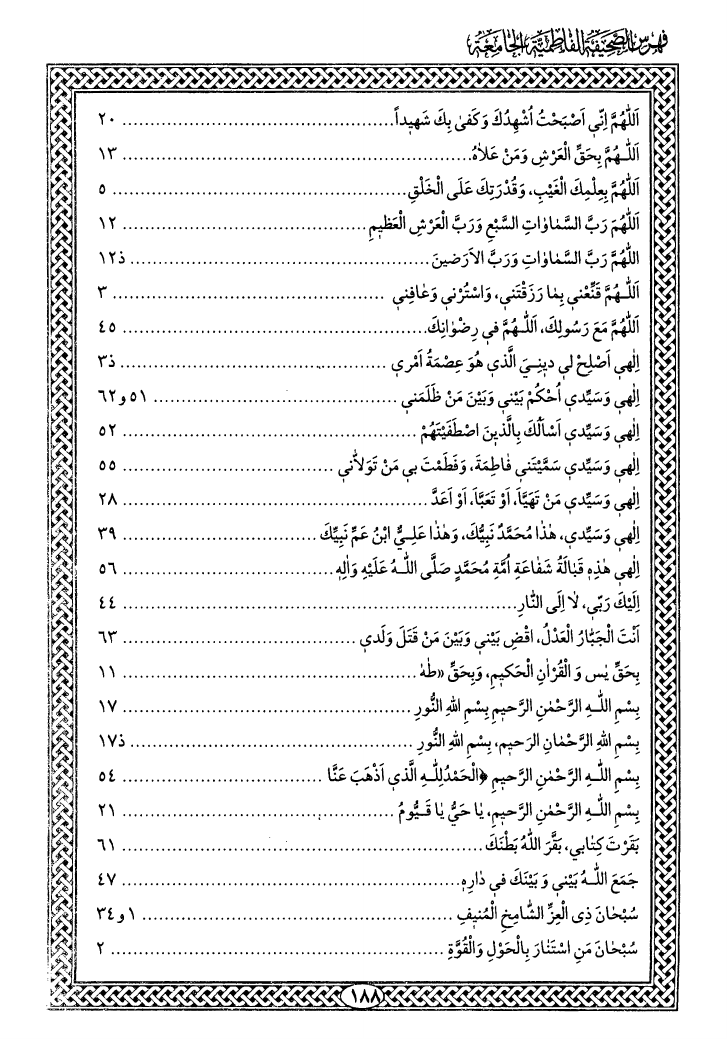 فهرس الصحيفة الفاطمية الجامعة
اَللّٰهُمَّ اِنّي اَصْبَحْتُ اُشْهِدُكَ وَكَفىٰ بِكَ شَهيداً ........ ٢٠
اَللّٰـهُمَّ بِحَقِّ الْعَرْشِ وَمَنْ عَلاٰهُ ........ ١٣
اَللّٰهُمَّ بِعِلْمِكَ الْغَيْبِ، وَقُدْرَتِكَ عَلَى الْخَلْقِ ........ ٥
اَللّٰهُمَ رَبَّ السَّمٰاوٰاتِ السَّبْعِ وَرَبَّ الْعَرْشِ الْعَظيمِ ........ ١٢
اللّٰهُمَّ رَبَّ السَّمٰاوٰاتِ وَرَبَّ الاَرَضينَ ........ ذ١٢
اَللّٰـهُمَّ قَنِّعْني بِمٰا رَزَقْتَني، وَاسْتُرْني وَعٰافِني ........ ٣
اَللّٰهُمَّ مَعَ رَسُولِكَ، اَللّٰـهُمَّ في رِضْوٰانِكَ ........ ٤٥
اِلٰهي اَصْلِحْ لي دينِـيَ الَّذي هُوَ عِصْمَةُ اَمْري ........ ذ٣
اِلٰهي وَسَيِّدي اُحْكُمْ بَيْني وَبَيْنَ مَنْ ظَلَمَني ........ ٥١ و٦٢
اِلٰهي وَسَيِّدي اَسْأَلُكَ بِالَّذينَ اصْطَفَيْتَهُمْ ........ ٥٢
اِلٰهي وَسَيِّدي سَمَّيْتَني فٰاطِمَةَ، وَفَطَمْتَ بي مَنْ تَوَلاّٰني ........ ٥٥
اِلٰهي وَسَيِّدي مَنْ تَهَيَّأَ، اَوْ تَعَبَّاَ، اَوْ اَعَدَّ ........ ٢٨
اِلٰهي وَسَيِّدي، هٰذٰا مُحَمَّدٌ نَبِيُّكَ، وَهٰذٰا عَلِـيٌّ ابْنُ عَمِّ نَبِيِّكَ ........ ٣٩
اِلٰهي هٰذِهِ قَبٰالَةُ شَفٰاعَةِ اُمَّةِ مُحَمَّدٍ صَلَّى اللّٰـهُ عَلَيْهِ وَالِهِ ........ ٥٦
اِلَيْكَ رَبّي، لاٰ اِلَى النّٰارِ ........ ٤٤
اَنْتَ الْجَبّٰارُ الْعَدْلُ، اقْضِ بَيْني وَبَيْنَ مَنْ قَتَلَ وَلَدي ........ ٦٣
بِحَقِّ يٰس وَ الْقُرْاٰنِ الْحَكيمِ، وَبِحَقِّ «طٰهٰ ........ ١١
بِسْمِ اللّٰـهِ الرَّحْمٰنِ الرَّحيمِ بِسْمِ اللهِ النُّورِ ........ ١٧
بِسْمِ اللهِ الرَّحْمٰانِ الرَحيمِ، بِسْمِ اللهِ النُّورِ ........ ذ١٧
بِسْمِ اللّٰـهِ الرَّحْمٰنِ الرَّحيمِ ﴿الْحَمْدُلِلّٰـهِ الَّذي اَذْهَبَ عَنَّا ........ ٥٤
بِسْمِ اللّٰـهِ الرَّحْمٰنِ الرَّحيمِ، يٰا حَيُّ يٰا قَـيُّومُ ........ ٢١
بَقَرْتَ كِتٰابي، بَقَّرَ اللّٰهُ بَطْنَكَ ........ ٦١
جَمَعَ اللّٰـهُ بَيْني وَ بَيْنَكَ في دٰارِهِ ........ ٤٧
سُبْحٰانَ ذِى الْعِزِّ الشّٰامِخِ الْمُنيفِ ........ ١ و٣٤
سُبْحٰانَ مَنِ اسْتَنٰارَ بِالْحَوْلِ وَالْقُوَّةِ ........ ٢
١٨٨